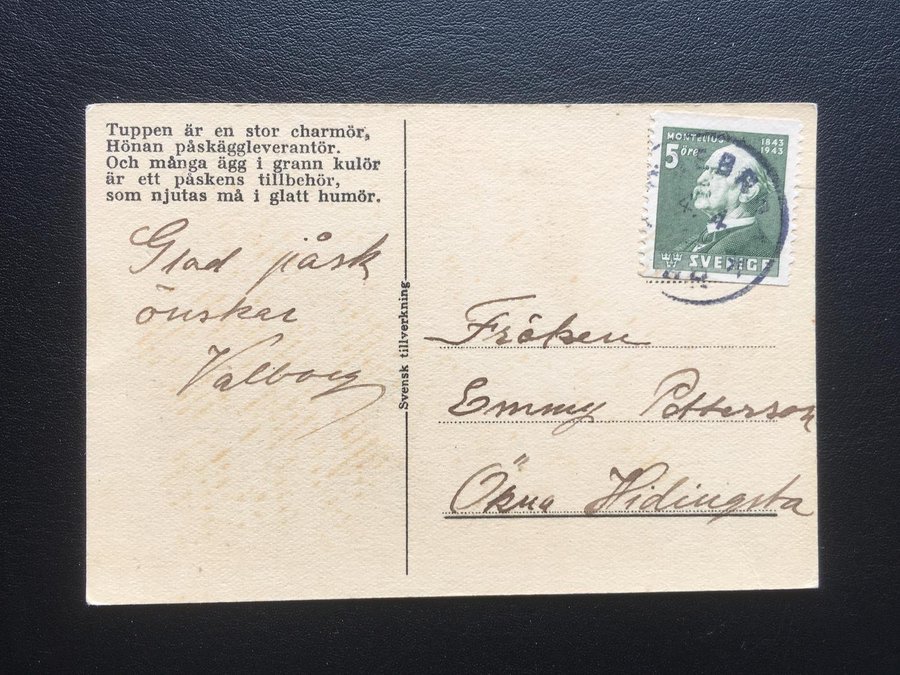 Tuppen är en stor charmör,
Hönan påskäggleverantör.
Och många ägg i grann kulör
är ett påskens tillbehör,
som njutas må i glatt humör.
Glad påsk
önskar
Valborg
Svensk tillverkning
MONTELIUS 1843
5 öre 1943
SVERIGE
Fröken
Emmy Petterson
Ökna Hidingsta